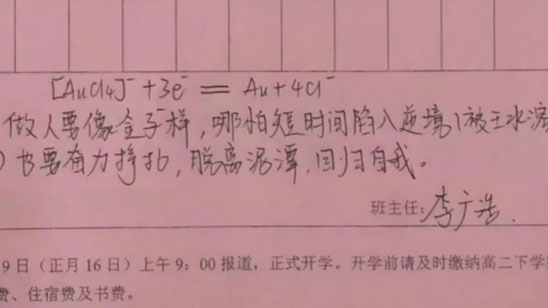 [AuCl4]⁻ +3e⁻ == Au+4Cl⁻
做人要像金子一样，哪怕短时间陷入逆境(被王水溶
)也要奋力挣扎，脱离泥潭，回归自我。
班主任：李广浩.
9日（正月16日）上午9：00报道，正式开学。开学前请及时缴纳高二下学
费、住宿费及书费。